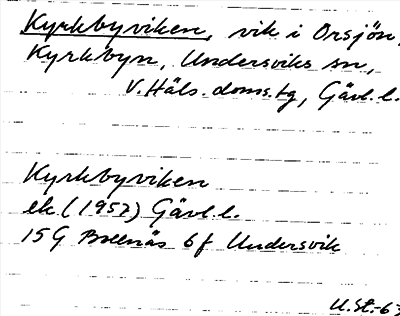 Kyrkbyviken, vik i Orsjön,
Kyrkbyn, Undersviks sn,
V. Häls. doms.tg, Gävl. l.
Kyrkbyviken
ek (1957) Gävl. l.
15G Breenäs 6f Undersvik
U.St.-63